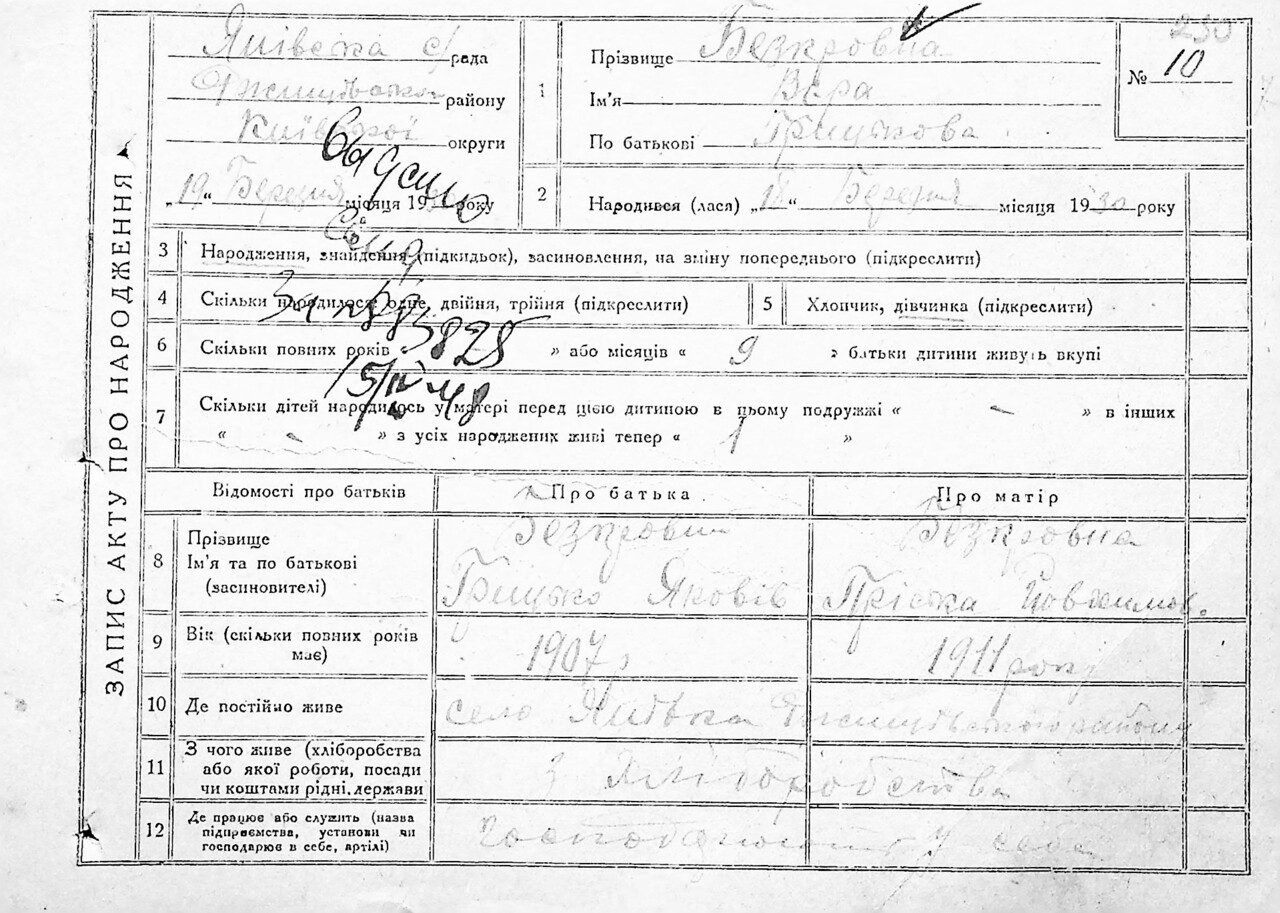 230
ЗАПИС АКТУ ПРО НАРОДЖЕННЯ
Янівська с/рада
району
Київської округи
„19“ Березня місяця 19 року
Выдано
Св
За № 3825
15/IV 48
1 Прізвище Безкровна
Ім'я Вера
По батькові Грицькова
№ 10
2 Народився (лася) „18“ Березня місяця 1930 року
3 Народження, знайдення (підкидьок), засиновлення, на зміну попереднього (підкреслити)
4 Скільки народилося: одне, двійня, трійня (підкреслити)
5 Хлопчик, дівчинка (підкреслити)
6 Скільки повних років » або місяців « 9 » батьки дитини живуть вкупі
7 Скільки дітей народилось у матері перед цією дитиною в цьому подружжі « - » в інших
« - » з усіх народжених живі тепер « 1 »
Відомості про батьків
Про батька
Про матір
8 Прізвище
Ім'я та по батькові
(засиновителі)
Безкровний
Грицько Яковів
Безкровна
Пріська Йовхимов.
9 Вік (скільки повних років
має)
1907 р
1911 року
10 Де постійно живе
село Янівка району
11 З чого живе (хліборобства
або якої роботи, посади
чи коштами рідні, держави
з хліборобства
12 Де працює або служить (назва
підприємства, установи чи
господарює в себе, артілі)
у себе